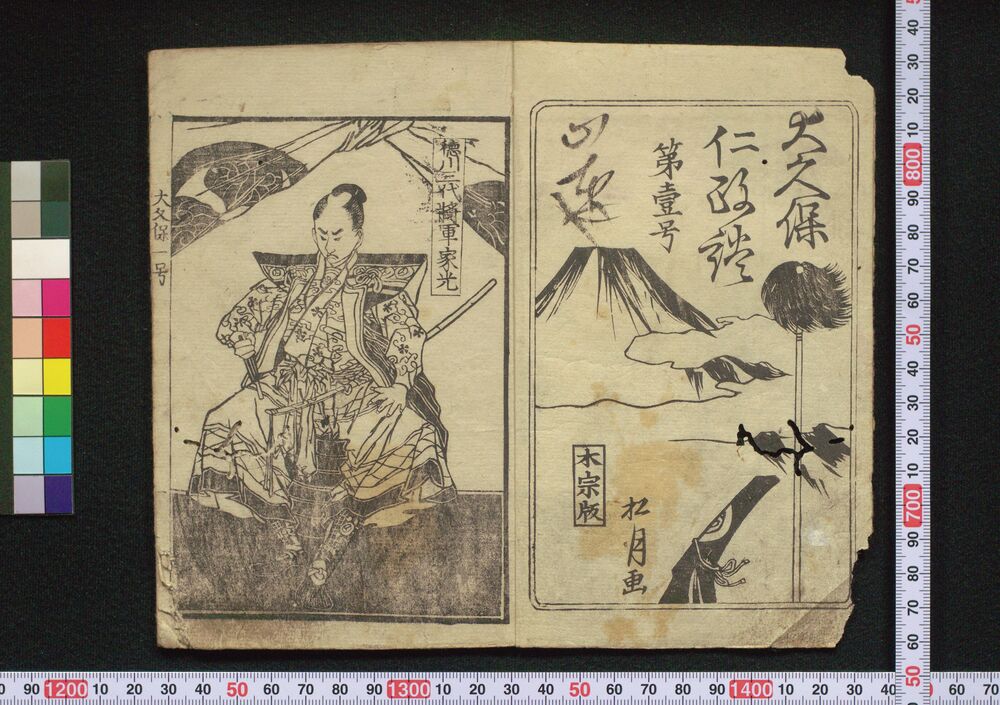 大久保
仁政談
第壹号
松月画
木宗版
徳川三代将軍家光
大久保 一号
0 90 1200 10 20 30 40 50 60 70 80 90 1300 10 20 30 40 50 60 70 80 90 1400 10 20 30 40
60 70
50 40 30 20 10 800 90 80 70 60 50 40 30 20 10 700 90 80 70 60 50